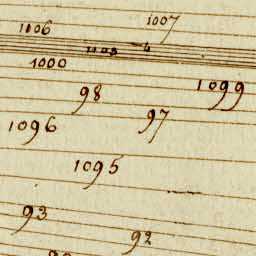 1007
1106
1000
1099
98
97
1096
1095
93
92